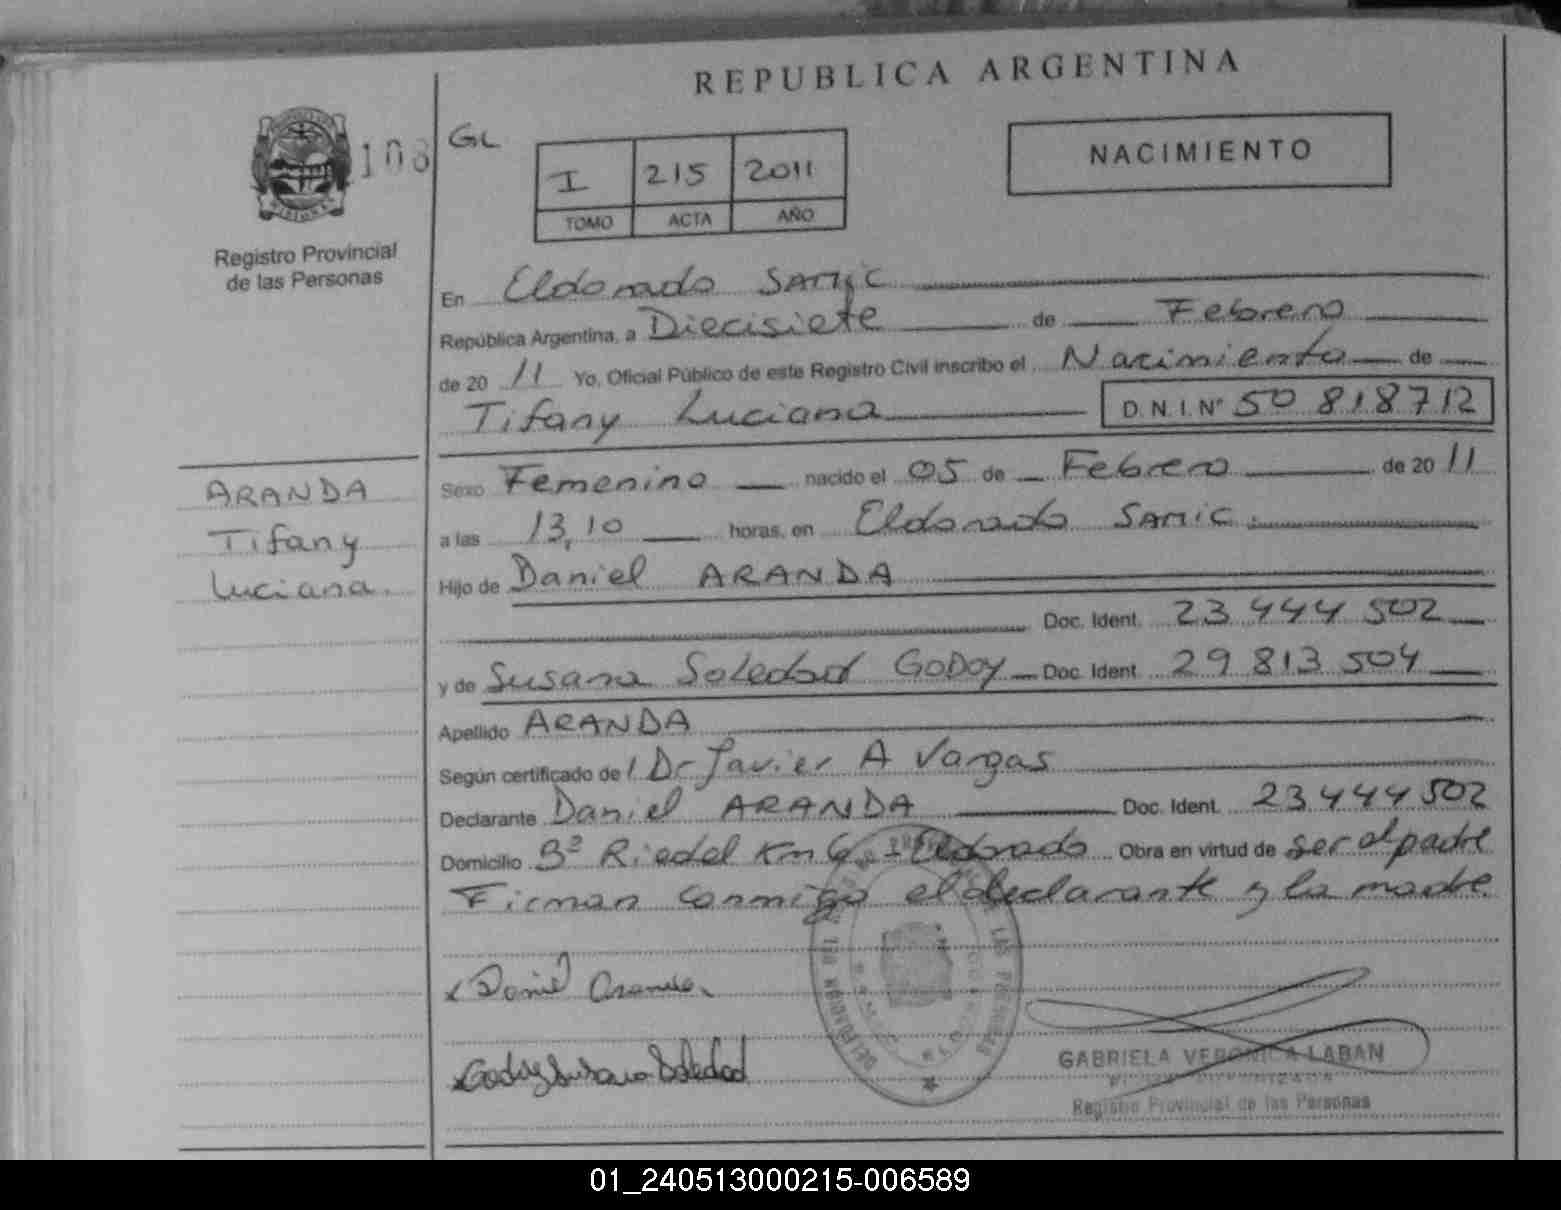 REPUBLICA ARGENTINA
GL
I 215 2011
TOMO ACTA AÑO
NACIMIENTO
MISIONES
108
Registro Provincial
de las Personas
En Eldorado SAMIC
República Argentina, a Diecisiete de Febrero
de 20 11 Yo, Oficial Público de este Registro Civil inscribo el Nacimiento de
Tifany Luciana D.N.I.Nº 50 818712
ARANDA
Tifany
Luciana.
Sexo Femenino nacido el 05 de Febrero de 20 11
a las 13,10 horas, en Eldorado SAMIC.
Hijo de Daniel ARANDA
Doc. Ident. 23 444 502
y de Susana Soledad GODOY Doc. Ident. 29 813 504
Apellido ARANDA
Según certificado de l Dr Javier A Vargas
Declarante Daniel ARANDA Doc. Ident. 23444502
Domicilio Bº Riedel Km 6 Eldorado Obra en virtud de ser el padre
Firman conmigo el declarante y la madre
x Daniel Aranda.
x Godoy Susana Soledad
GABRIELA VERONICA LABAN
Registro Provincial de las Personas
01_240513000215-006589